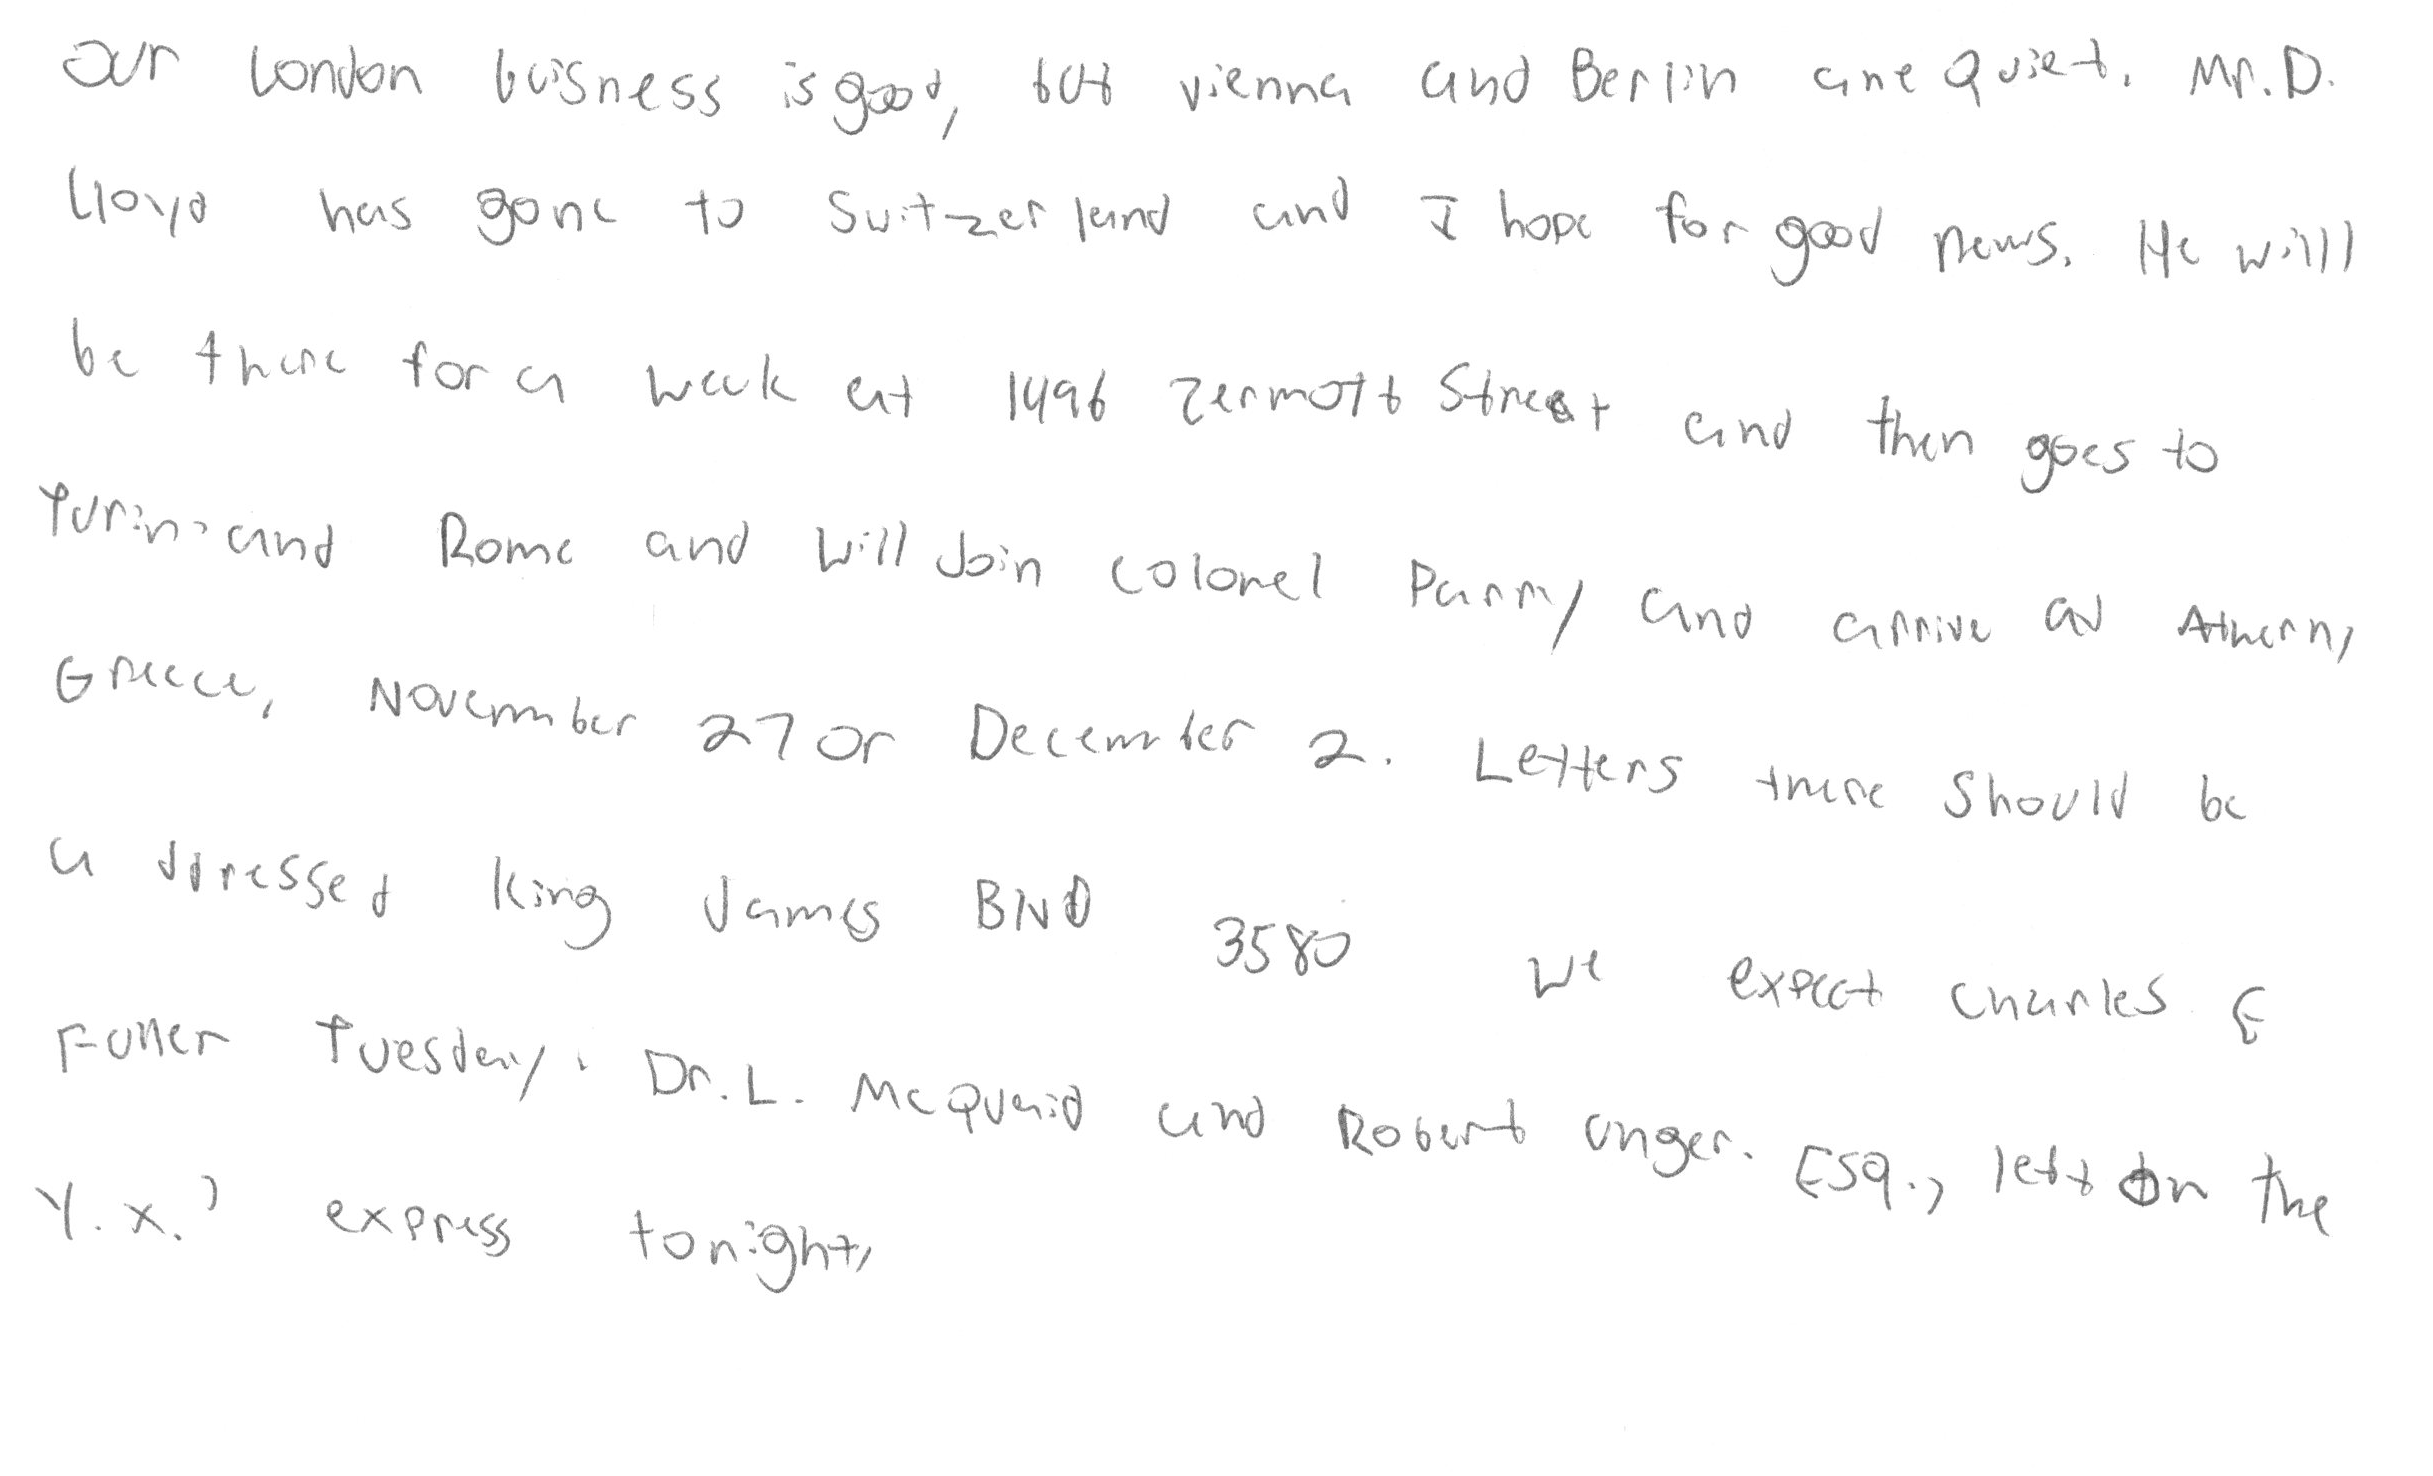 Our London buisness is good, but vienna and Berlin are Quiet. Mr. D.
Lloyd has gone to Switzerland and I hope for good news. He will
be there for a week at 1496 Zermott Street and then goes to
Turin and Rome and will Join colonel Parry and arrive at Athern,
Greece, November 27 or December 2. Letters there Should be
a ddressed King James BlvD 3580 we expect charles E
Fuller Tuesday. Dr. L. McQuaid and Robert unger. Esq., left on the
Y.X.' express tonight,